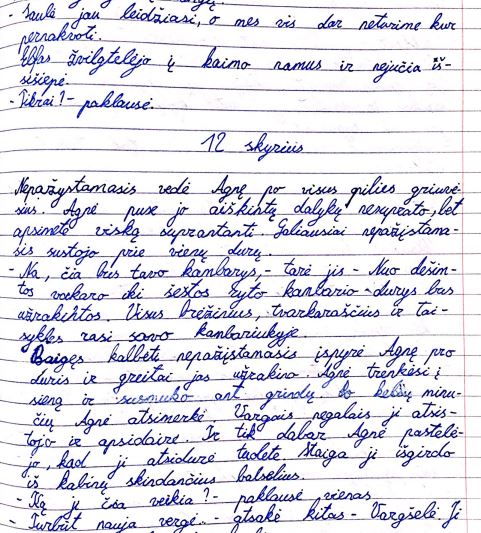 - Saulė jau leidžiasi, o mes vis dar neturime kur
pernakvoti.
Elfas žvilgtelėjo į kaimo namus ir nejučia iš-
sišiepė.
- Tikrai? - paklausė.
12 skyrius
Nepažystamasis vedė Agnę po visus pilies griuvė-
sius. Agnė puse jo aiškintų dalykų nesuprato, bet
apsimetė viską suprantanti. Galiausiai nepažįstama-
sis sustojo prie vienų durų.
- Na, čia bus tavo kambarys, - tarė jis - Nuo dešim-
tos vakaro iki šeštos ryto kambario durys bus
užrakintos. Visus brėžinius, tvarkaraščius ir tai-
sykles rasi savo kambariukyje.
Baigęs kalbėti nepažįstamasis įspyrė Agnę pro
duris ir greitai jas užrakino. Agnė trenkėsi į
sieną ir susmuko ant grindų. Po kelių minu-
čių Agnė atsimerkė. Vargais negalais ji atsis-
tojo ir apsidairė. Ir tik dabar Agnė pastebė-
jo, kad ji atsidurė Staiga ji išgirdo
iš kabinų sklindančius balselius.
- Ką ji čia veikia? - paklausė vienas
- Turbūt nauja vergė. - atsakė kitas - Vargšelė. Ji